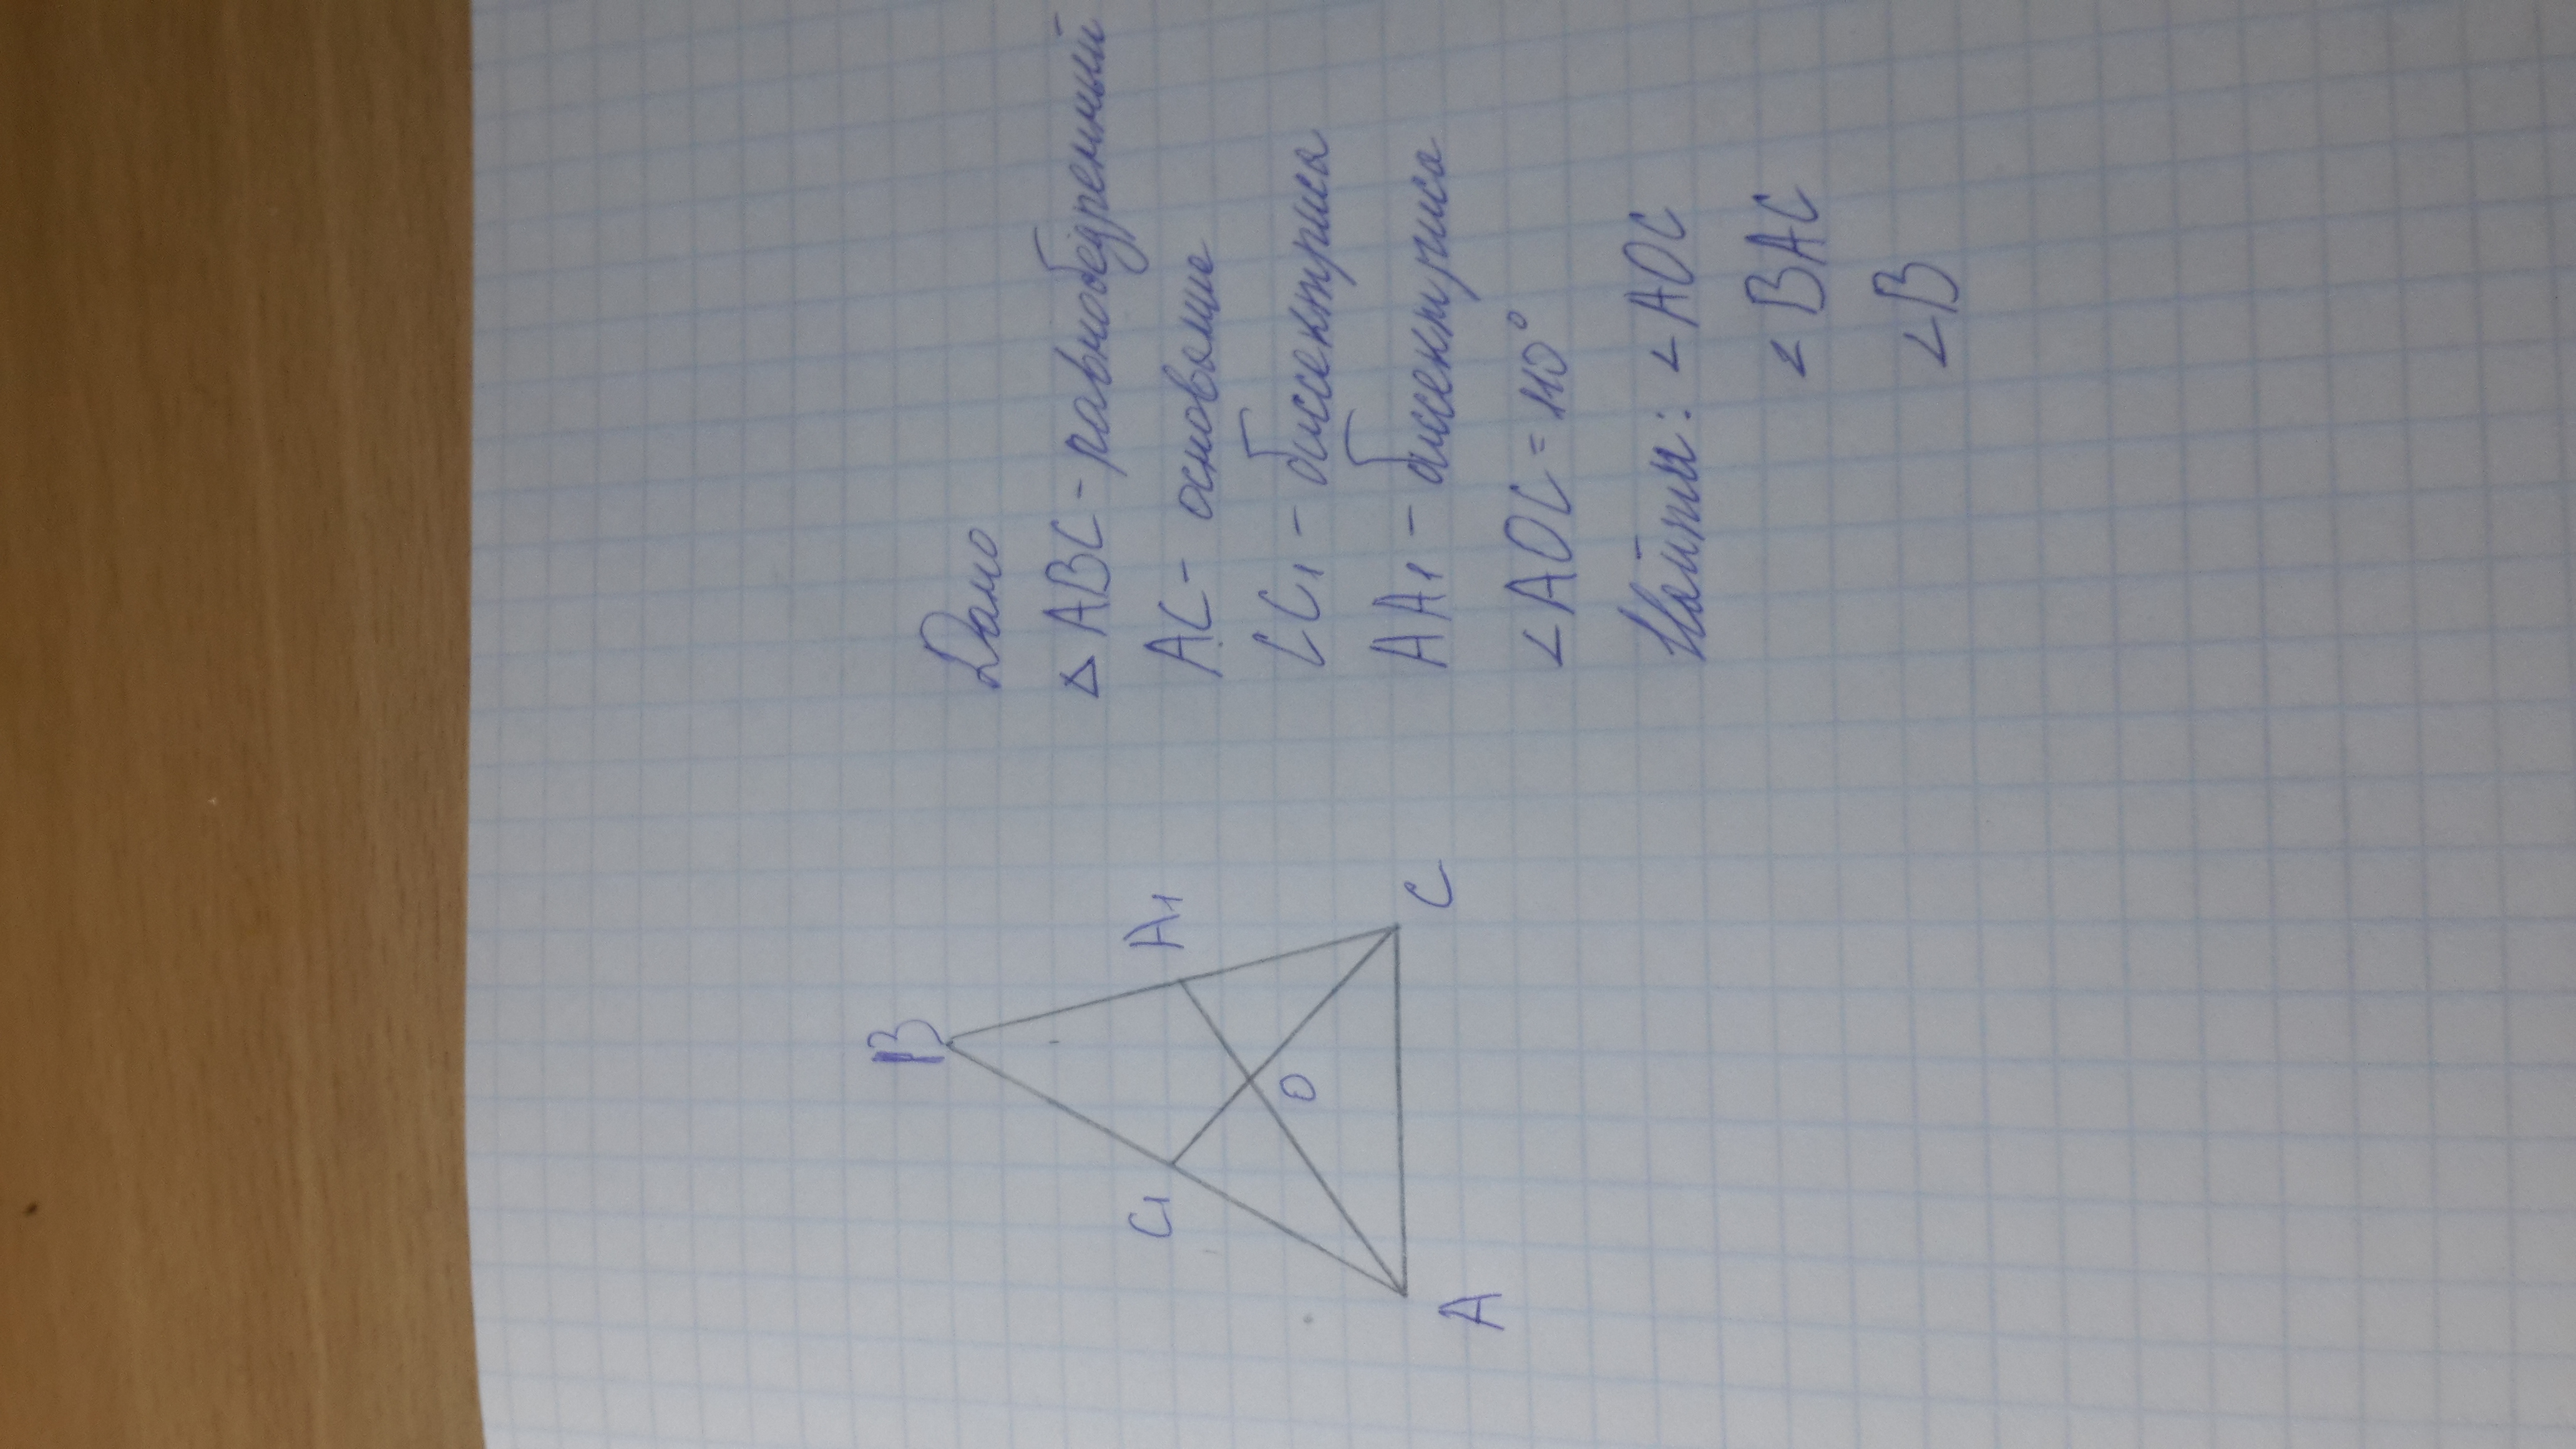 B
C1
A1
O
A
C
Дано
Δ ABC - равнобедренный
AC - основание
CC1 - биссектриса
AA1 - биссектриса
∠AOC = 110°
Найти: ∠AOC
∠BAC
∠B